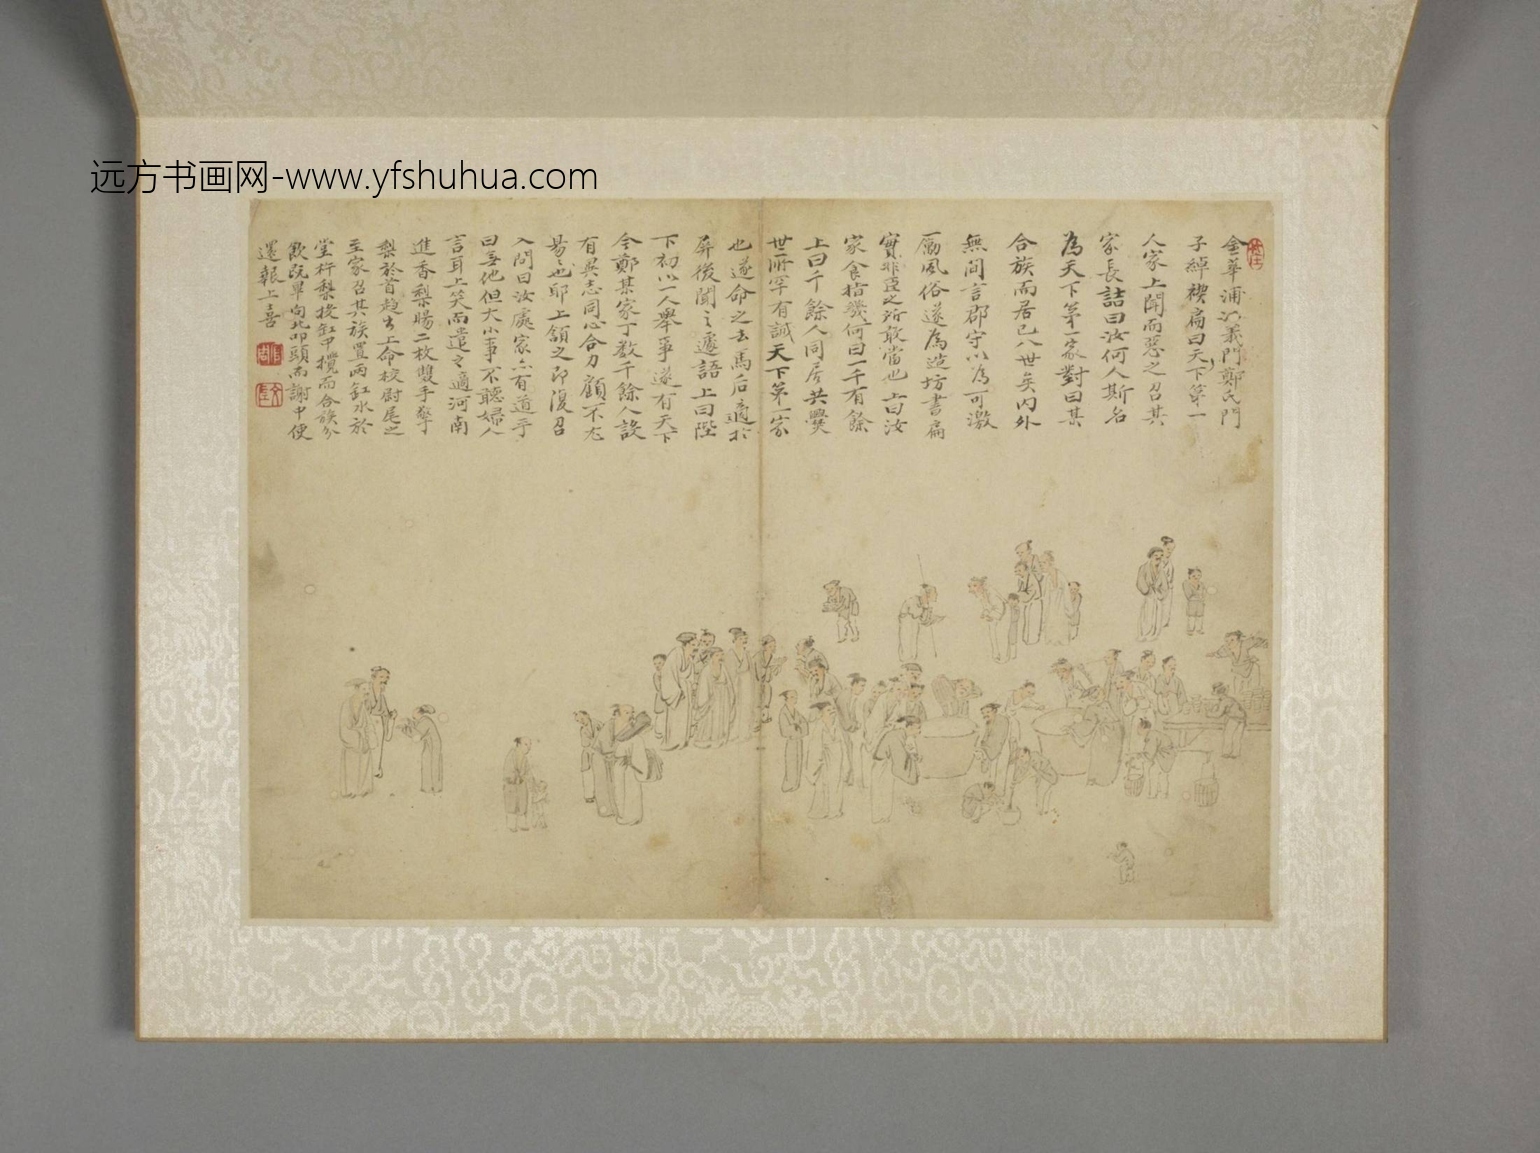 远方书画网-www.yfshuhua.com
金華浦江義門鄭氏門
子綽禊扁曰天下第一
人家上聞而惡之召其
家長詰曰汝何人斯名
為天下第一家對曰某
合族而居已八世矣内外
無間言郡守以為可激
勵風俗遂為造坊書扁
實非臣之所敢當也上曰汝
家食指幾何曰一千有餘
上曰千餘人同居共爨
世所罕有誠天下第一家
也遂命之去馬后適於
屏後聞之遽語上曰陛
下初以一人舉事遂有天下
今鄭某家丁數千餘人設
有異志同心合力顧不尤
易之也耶上頷之即復召
入問曰汝處家亦有道乎
曰無他但大小事不聽婦人
言耳上笑而遣之適河南
進香梨賜二枚雙手擎
梨於首趨出上命校尉尾之
至家召其族置兩缸水於
堂杵梨投缸中攪而合族分
飲既畢向北叩頭而謝中使
還報上喜